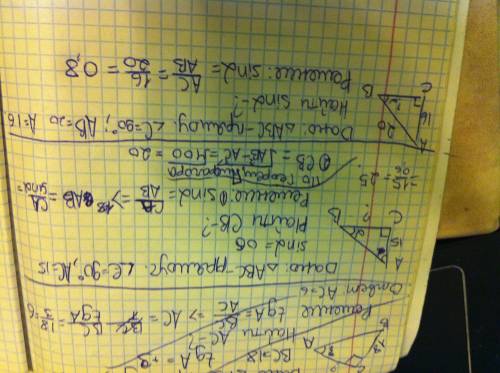 tgA =
BC=18
Найти AC-?
Решение
tgA = BC/AC => AC = BC/tgA = 18/3 = 6
Ответ AC=6
Дано: ΔABC-прямоуг. ∠C=90°, AC=15
sinα = 06
Найти CB-?
Решение: ① sinα = CA/AB => AB = CA/sinα =
= 15/06 = 25
По теореме Пифагора
② CB = √AB²-AC² = √400 = 20
Дано: ΔABC-прямоуг. ∠C=90°; AB=20 A=16
Найти Sinα-?
Решение: sinα = AC/AB = 16/20 = 0,8